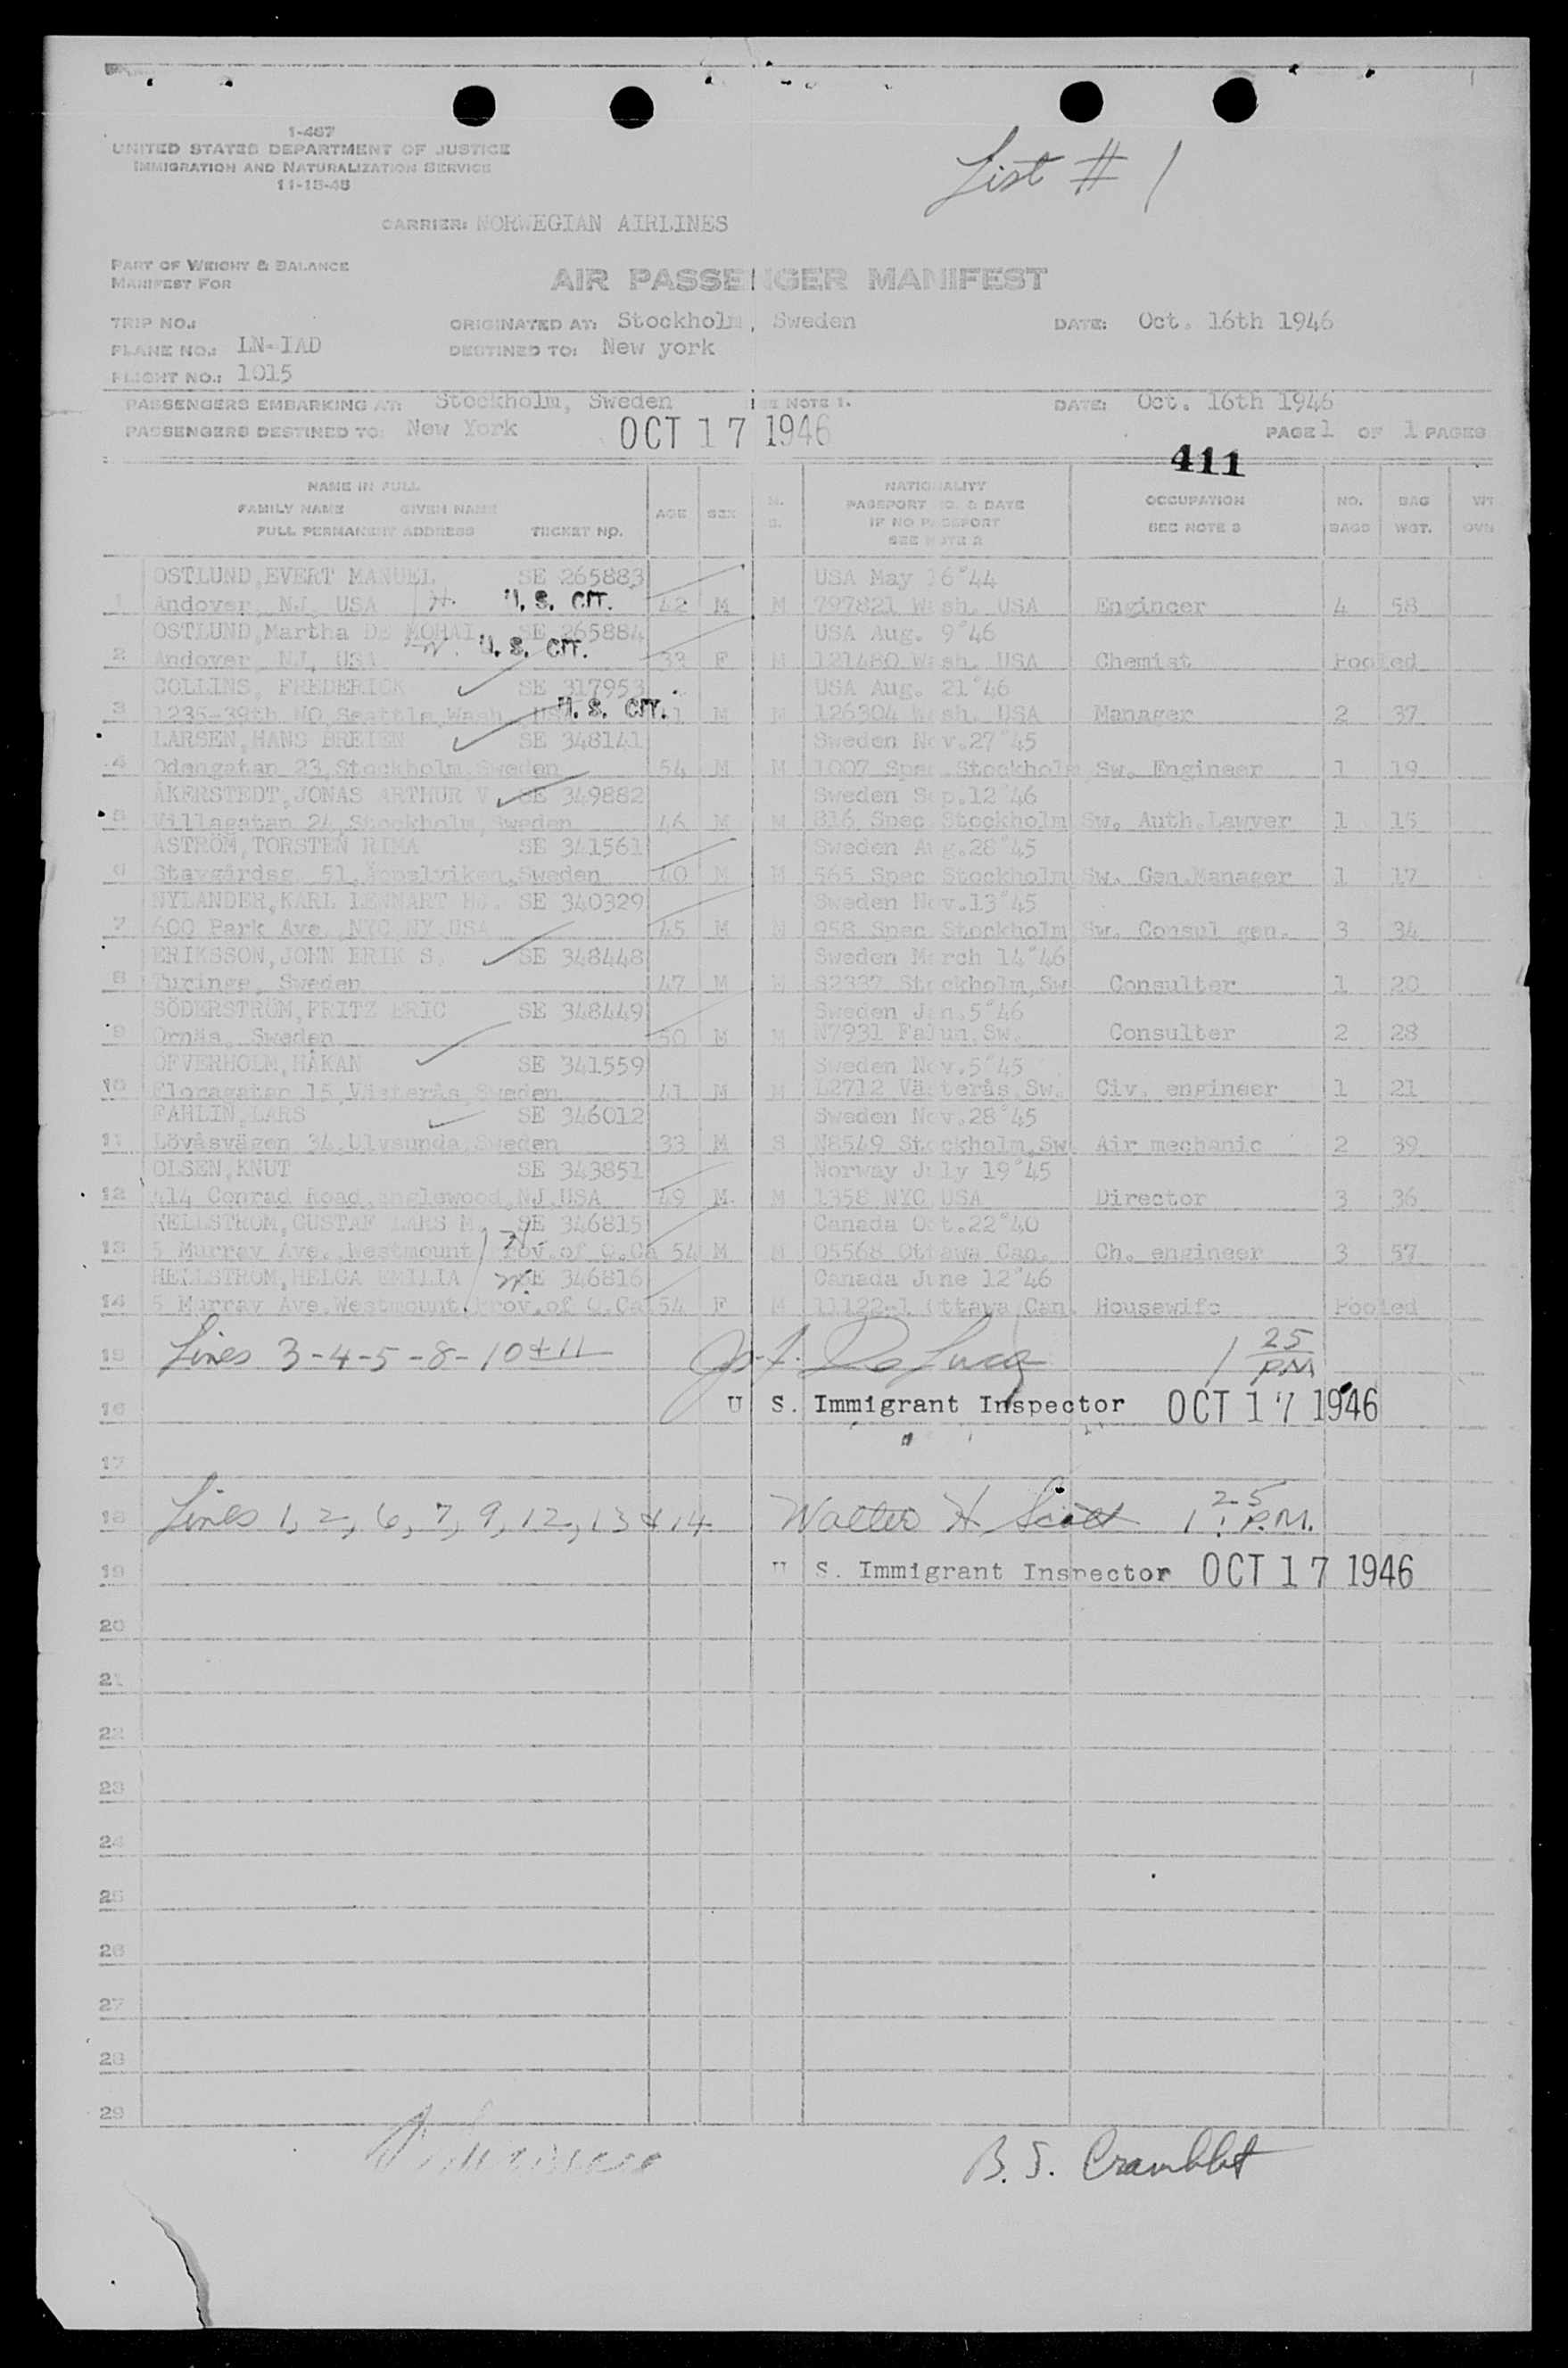 List # 1
1-467
UNITED STATES DEPARTMENT OF JUSTICE
IMMIGRATION AND NATURALIZATION SERVICE
11-15-45
CARRIER: NORWEGIAN AIRLINES
PART OF WEIGHT & BALANCE
MANIFEST FOR
AIR PASSENGER MANIFEST
TRIP NO.: ORIGINATED AT: Stockholm, Sweden DATE: Oct. 16th 1946
PLANE NO.: LN-IAD DESTINED TO: New york
FLIGHT NO.: 1015
PASSENGERS EMBARKING AT: Stockholm, Sweden SEE NOTE 1. DATE: Oct. 16th 1946
PASSENGERS DESTINED TO: New York OCT 17 1946 PAGE 1 OF 1 PAGES
411
NAME IN FULL NATIONALITY
FAMILY NAME GIVEN NAME AGE SEX M. PASSPORT NO. & DATE OCCUPATION NO. BAG WT
FULL PERMANENT ADDRESS TICKET NO. S. IF NO PASSPORT SEE NOTE 3 BAGS WGT. OVN
SEE NOTE 2
OSTLUND, EVERT MANUEL SE 265883 USA May 16"44
1 Andover, NJ, USA U. S. CIT. 42 M M 797821 Wash. USA Engineer 4 58
OSTLUND, Martha DE MOHAI SE 265884 USA Aug. 9"46
2 Andover, NJ, USA U. S. CIT. 33 F M 121480 Wash. USA Chemist Pooled
COLLINS, FREDERICK SE 317953 USA Aug. 21"46
3 1235-39th NO, Seattle, Wash. USA U. S. CIT. M M 126304 Wash. USA Manager 2 37
LARSEN, HANS BREIEN SE 348141 Sweden Nov.27"45
4 Odengatan 23, Stockholm, Sweden 54 M M 1007 Spec. Stockholm Sw. Engineer 1 19
ÅKERSTEDT, JONAS ARTHUR V SE 349882 Sweden Sep.12"46
5 Villagatan 24, Stockholm, Sweden 46 M M 816 Spec Stockholm Sw. Auth.Lawyer 1 15
ASTROM, TORSTEN RIMA SE 341561 Sweden Aug.28"45
6 Stavgårdsg. 51, Äppelviken, Sweden 40 M M 565 Spec Stockholm Sw. Gen.Manager 1 17
NYLANDER, KARL LENNART SE 340329 Sweden Nov.13"45
7 600 Park Ave. NYC NY USA 45 M M 958 Spec Stockholm Sw. Consul gen. 3 34
ERIKSSON, JOHN ERIK S. SE 348448 Sweden March 14"46
8 Turinge, Sweden 47 M M S2337 Stockholm, Sw Consulter 1 20
SÖDERSTRÖM, FRITZ ERIC SE 348449 Sweden Jan.5"46
9 Ornäs, Sweden 50 M M N7931 Falun, Sw. Consulter 2 28
ÖFVERHOLM, HÅKAN SE 341559 Sweden Nov.5"45
10 Floragatan 15, Västerås, Sweden 41 M M L2712 Västerås, Sw. Civ. engineer 1 21
FAHLIN, LARS SE 346012 Sweden Nov.28"45
11 Lövåsvägen 34, Ulvsunda, Sweden 33 M S N8549 Stockholm, Sw Air mechanic 2 39
OLSEN, KNUT SE 343851 Norway July 19"45
12 414 Conrad Road, Englewood, NJ, USA 49 M M 1358 NYC USA Director 3 36
HELLSTROM, GUSTAF LARS M. SE 346815 Canada Oct.22"40
13 5 Murray Ave. Westmount Prov.of Q.Ca 54 M M 05568 Ottawa Can. Ch. engineer 3 57
HELLSTROM, HELGA EMILIA SE 346816 Canada June 12"46
14 5 Murray Ave. Westmount. Prov.of Q.Ca 54 F M 11122-1 Ottawa Can. Housewife Pooled
15 Lines 3-4-5-8-10 & 11 1 25 PM
16 U S. Immigrant Inspector OCT 17 1946
17
18 Lines 1, 2, 6, 7, 9, 12, 13 & 14 Walter H Scott 1:25 P.M.
19 U S. Immigrant Inspector OCT 17 1946
20
21
22
23
24
25
26
27
28
29
B. S. Cramblet